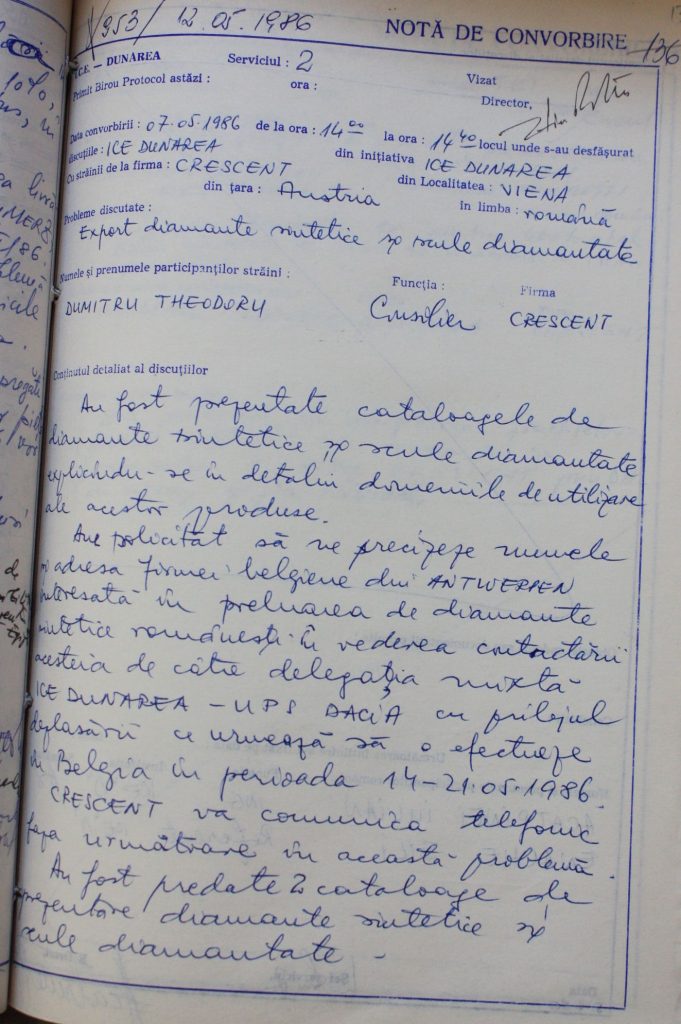 953 / 12.05.1986
NOTĂ DE CONVORBIRE 136
I.C.E. – DUNĂREA Serviciul : 2 Vizat
Primit Birou Protocol astăzi : ora : Director,
Data convorbirii : 07.05.1986 de la ora : 14 00 la ora : 14 40 locul unde s-au desfășurat
discuțiile : ICE DUNAREA din inițiativa ICE DUNAREA
Cu străinii de la firma : CRESCENT din Localitatea : VIENA
din țara : Austria in limba : română
Probleme discutate :
Export diamante sintetice și scule diamantate
Numele și prenumele participanților străini : Funcția : Firma
DUMITRU THEODORU Consilier CRESCENT
Conținutul detaliat al discuțiilor
Au fost prezentate cataloagele de
diamante sintetice și scule diamantate
explicîndu-se în detaliu domeniile de utilizare
ale acestor produse.
Am solicitat să ne precizeze numele
și adresa firmei belgiene din ANTWERPEN
interesată în preluarea de diamante
sintetice românești în vederea contactării
acesteia de către delegația mixtă
ICE DUNAREA – UPS DACIA cu prilejul
deplasării ce urmează să o efectueze
în Belgia în perioada 14-21.05.1986.
CRESCENT va comunica telefonic
faza următoare în această problemă.
Au fost predate 2 cataloage de
prezentare diamante sintetice și
scule diamantate -